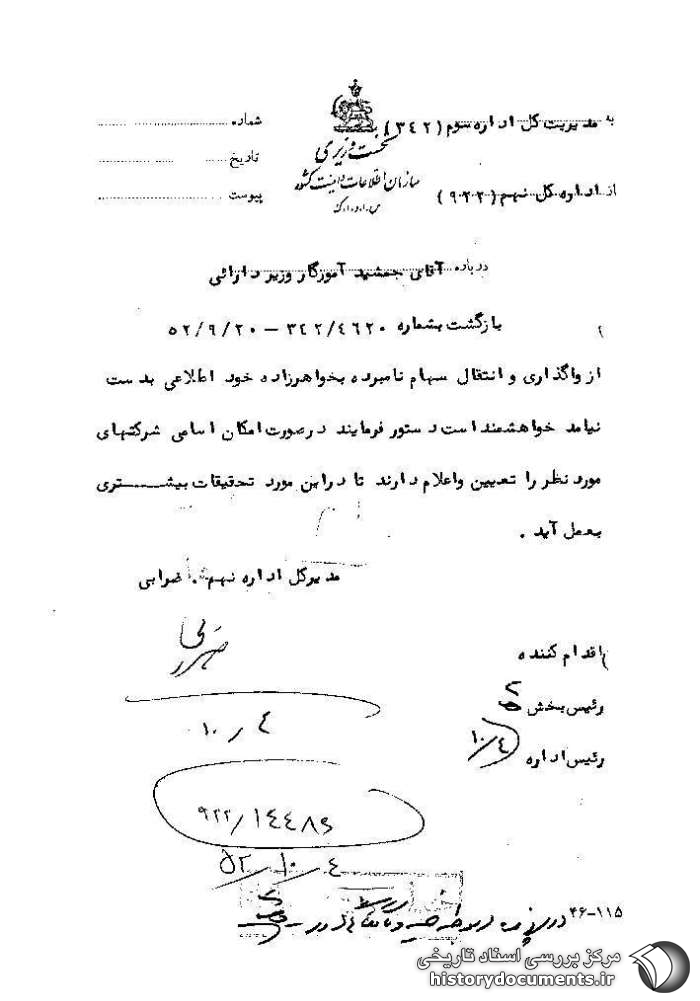 به مدیریت کل اداره سوم (۳۴۲)
از اداره کل نهم (۹۲۲)
نخست وزیری
سازمان اطلاعات و امنیت کشور
س.ا.و.ا.ک
شماره
تاریخ
پیوست
درباره آقای جمشید آموزگار وزیر دارائی
بازگشت بشماره ۳۴۲/۴۶۲۰ – ۵۲/۹/۲۰
از واگذاری و انتقال سهام نامبرده بخواهرزاده خود اطلاعی بدست
نیامد خواهشمند است دستور فرمایند درصورت امکان اسامی شرکتهای
مورد نظر را تعیین واعلام دارند تا دراین مورد تحقیقات بیشتری
بعمل آید .
مدیرکل اداره نهم . ضرابی
اقدام کننده
رئیس بخش
رئیس اداره ۱۰/۴
۱۰/۴
۹۲۲/۱۴۴۸۶
۵۲/۱۰/۴
۴۶-۱۱۵
مرکز بررسی اسناد تاریخی
historydocuments.ir